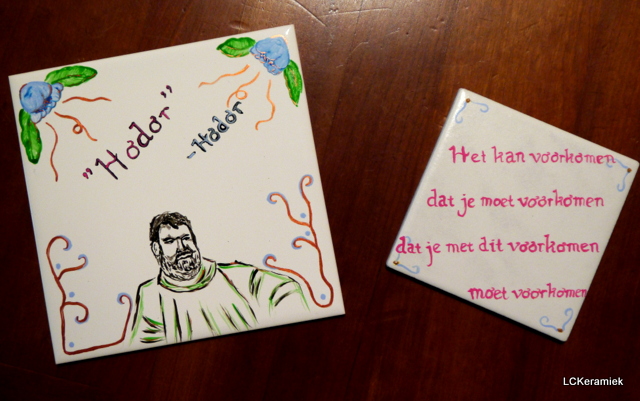 „Hodor”
-Hodor
Het kan voorkomen
dat je moet voorkomen
dat je met dit voorkomen
moet voorkomen
LCKeramiek